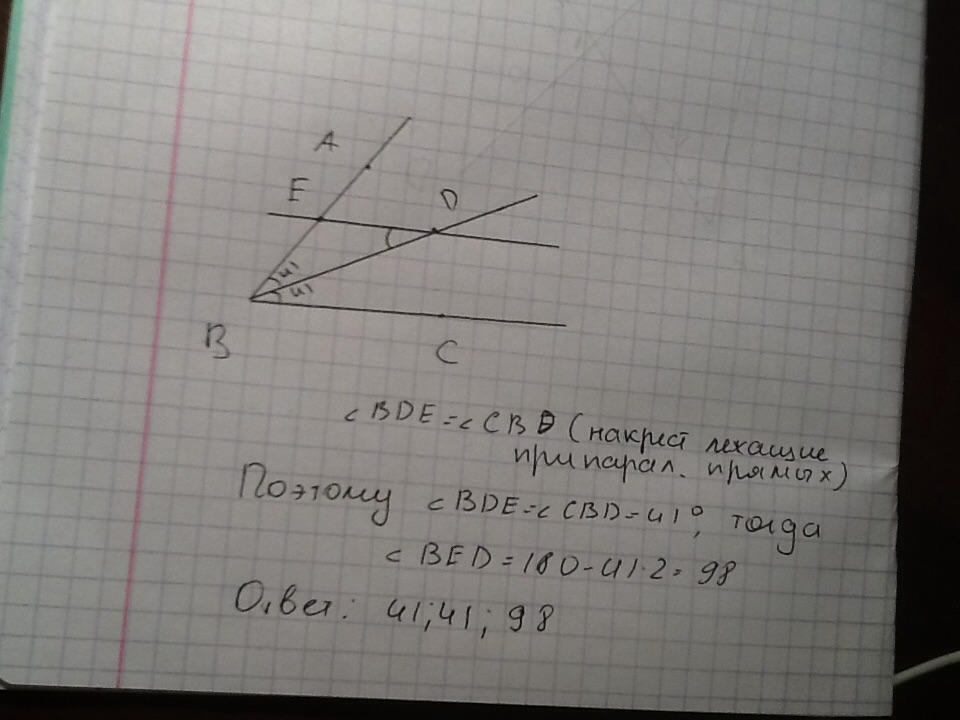 A
E
D
41
41
B
C
∠BDE=∠CBD (накрест лежащие
при парал. прямых)
Поэтому ∠BDE=∠CBD=41°, тогда
∠BED=180-41·2=98
Ответ: 41; 41; 98